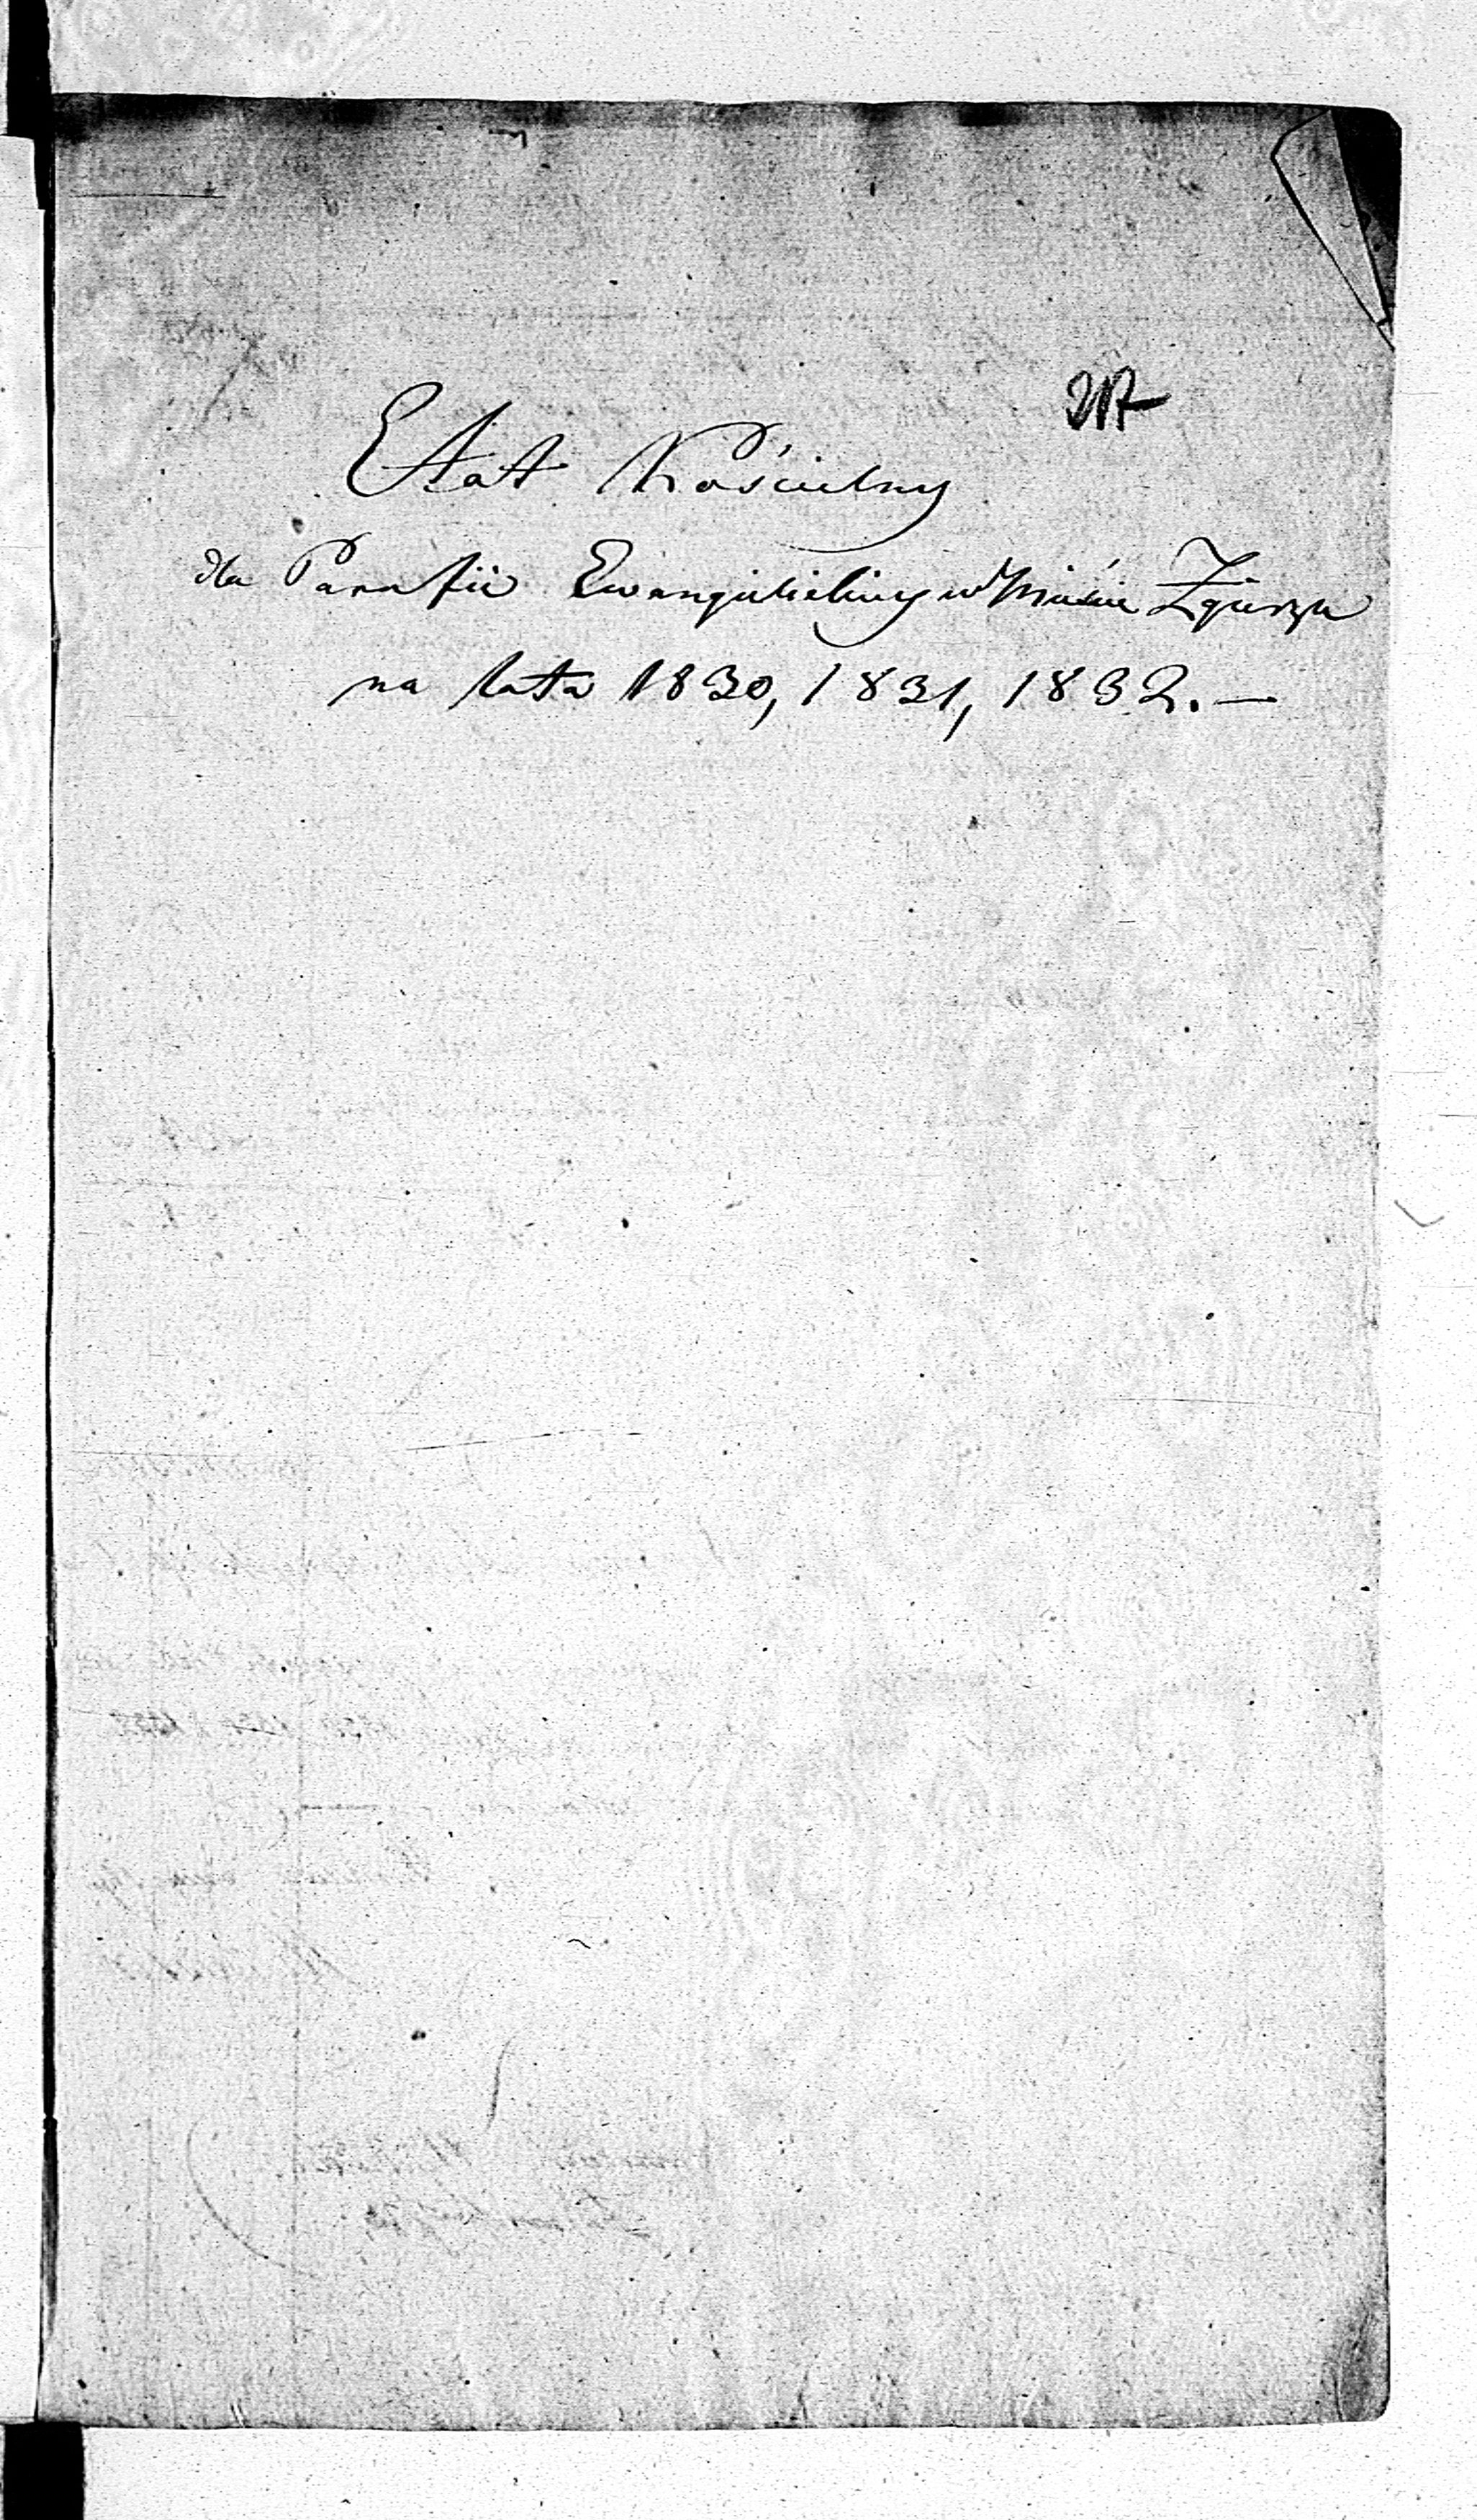 217
Etat Kościelny
dla Parafii Ewangielickiey w Mieście Zgierzu
na lata 1830, 1831, 1832. —